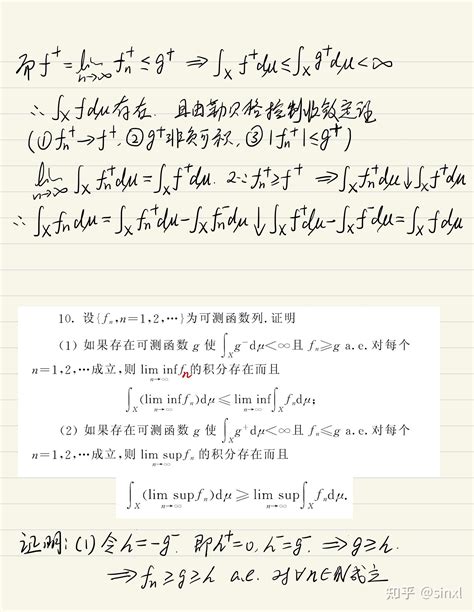 而 f⁺ = lim_{n→∞} fₙ⁺ ≤ g⁺ ⇒ ∫_X f⁺dμ ≤ ∫_X g⁺dμ < ∞
∴ ∫_X fdμ 存在. 且由勒贝格控制收敛定理
(① fₙ⁺→f⁺, ② g⁺非负可积, ③ |fₙ⁺| ≤ g⁺)
lim_{n→∞} ∫_X fₙ⁺dμ = ∫_X f⁺dμ. 又∵ fₙ⁺ ≥ f⁺ ⇒ ∫_X fₙ⁺dμ ↓ ∫_X f⁺dμ
∴ ∫_X fₙdμ = ∫_X fₙ⁺dμ - ∫_X fₙ⁻dμ ↓ ∫_X f⁺dμ - ∫_X f⁻dμ = ∫_X fdμ
10. 设{fₙ,n=1,2,⋯}为可测函数列.证明
(1) 如果存在可测函数 g 使 ∫_X g⁻dμ<∞ 且 fₙ≥g a.e. 对每个
n=1,2,⋯成立,则 lim inf_{n→∞} fₙ 的积分存在而且
∫_X (lim inf_{n→∞} fₙ)dμ ≤ lim inf_{n→∞} ∫_X fₙdμ;
(2) 如果存在可测函数 g 使 ∫_X g⁺dμ<∞ 且 fₙ≤g a.e. 对每个
n=1,2,⋯成立,则 lim sup_{n→∞} fₙ 的积分存在而且
∫_X (lim sup_{n→∞} fₙ)dμ ≥ lim sup_{n→∞} ∫_X fₙdμ.
证明: (1) 令 h = -g⁻. 即 h⁺=0, h⁻=g⁻. ⇒ g≥h.
⇒ fₙ ≥ g ≥ h a.e. 对∀n∈ℕ成立
知乎 @sinxl